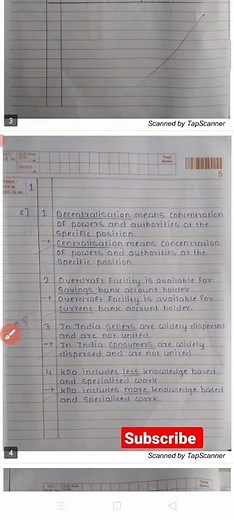 3
Scanned by TapScanner
Total
Marks
5
1
c] 1 Decentralisation means concentration
of powers and authorities at the
specific position.
→ Centralisation means concentration
of powers and authorities at the
specific position
2 Overdraft Facility is available for
Savings bank account holder.
→ Overdraft Facility is available for
current bank account holder.
3 In India Sellers are widely dispersed
and are not united.
→ In India consumers are widely
dispersed and are not united
4 KPO includes less knowledge based
and specialised work
→ KPO includes more knowledge based
and specialised work.
Subscribe
4
Scanned by TapScanner